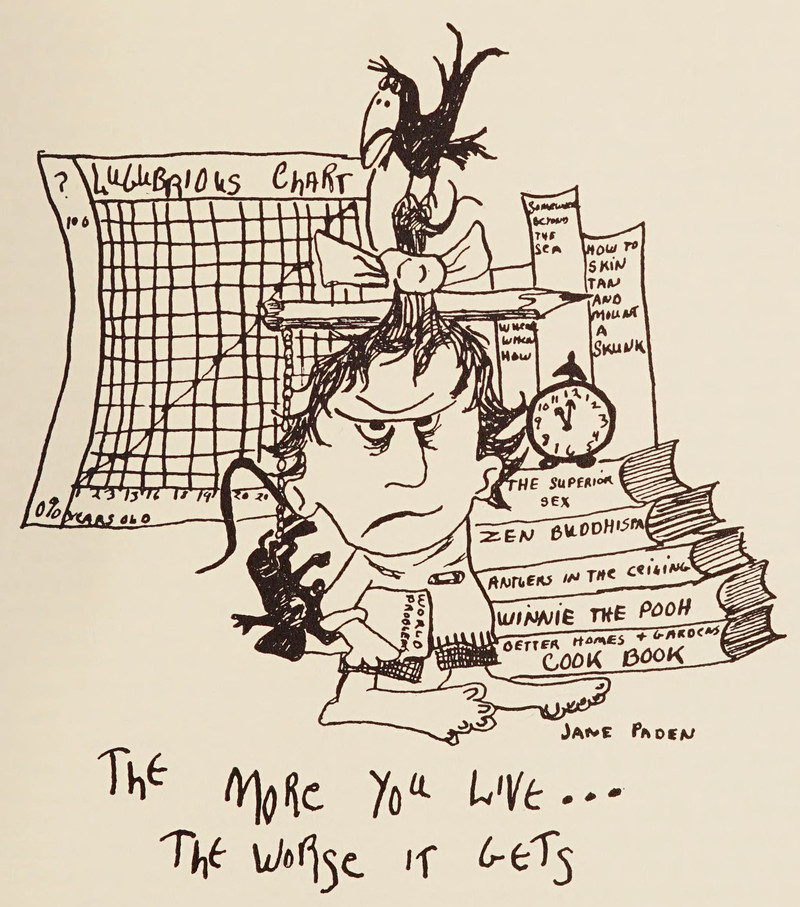 ?
LUGUBRIOUS CHART
100
0%
YEARS OLD
SOMEWHERE
BEYOND
THE
SEA
HOW TO
SKIN
TAN
AND
MOUNT
A
SKUNK
WHERE
WHEN
HOW
10 11 12 1 2
9
8
6 5 4
THE SUPERIOR
SEX
ZEN BUDDHISM
ANTLERS IN THE CEILING
WINNIE THE POOH
BETTER HOMES + GARDENS
COOK BOOK
WORLD
PROBLEMS
JANE PADEN
THE MORE YOU LIVE...
THE WORSE IT GETS